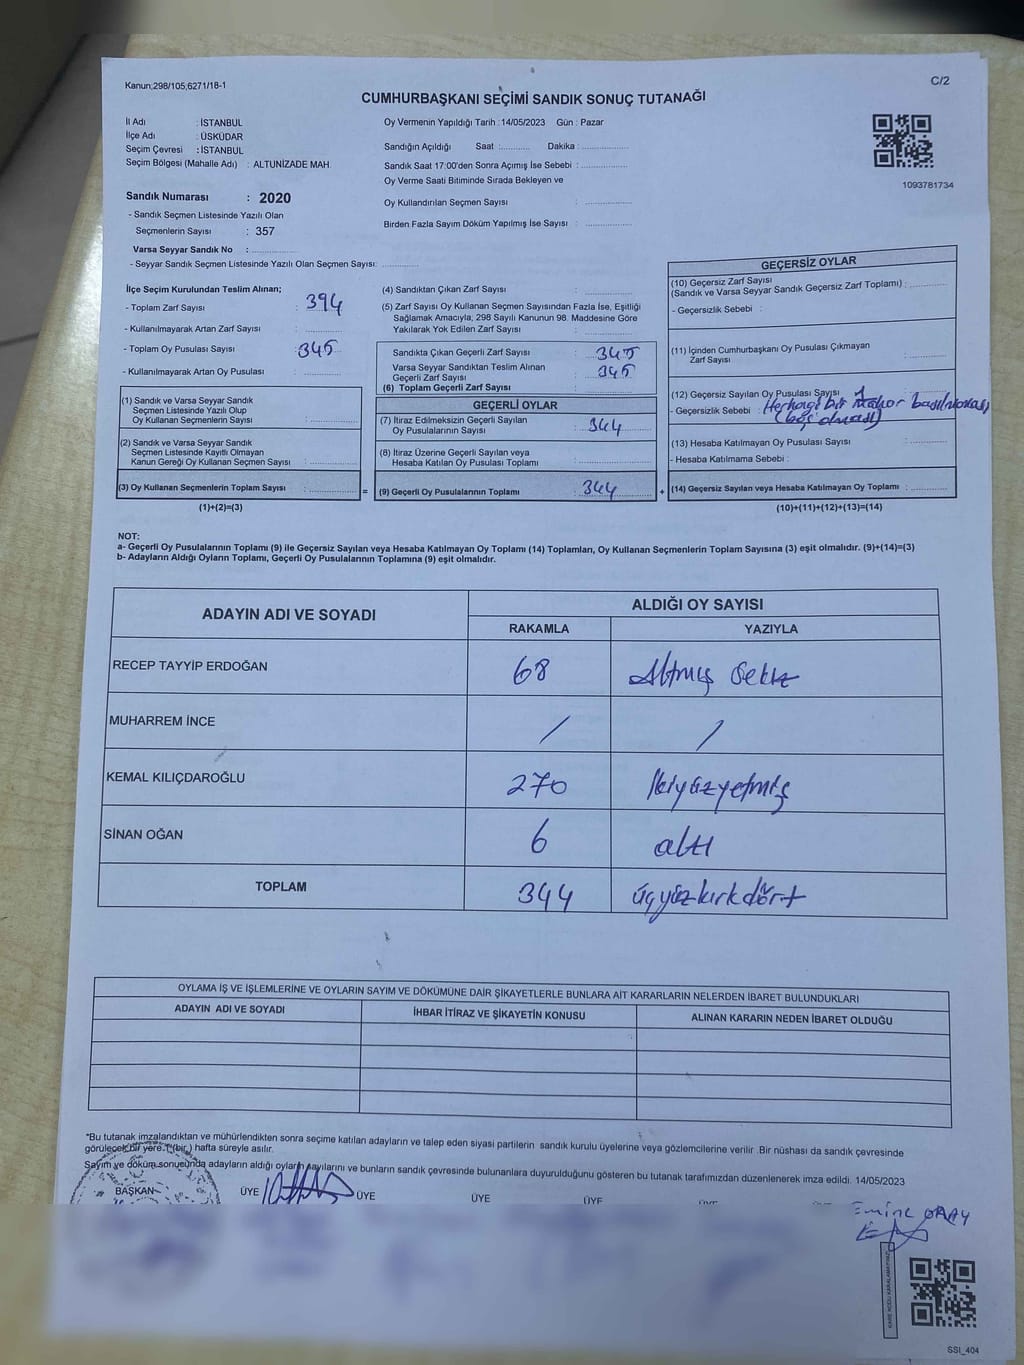 Kanun;298/105;6271/18-1
C/2
CUMHURBAŞKANI SEÇİMİ SANDIK SONUÇ TUTANAĞI
İl Adı : İSTANBUL
İlçe Adı : ÜSKÜDAR
Seçim Çevresi : İSTANBUL
Seçim Bölgesi (Mahalle Adı) : ALTUNİZADE MAH.
Oy Vermenin Yapıldığı Tarih : 14/05/2023 Gün : Pazar
Sandığın Açıldığı Saat :.......... Dakika : ..............
Sandık Saat 17:00'den Sonra Açımış İse Sebebi : ..............
Oy Verme Saati Bitiminde Sırada Bekleyen ve
Oy Kullandırılan Seçmen Sayısı : ..............
Birden Fazla Sayım Döküm Yapılmış İse Sayısı : ..............
1093781734
Sandık Numarası : 2020
- Sandık Seçmen Listesinde Yazılı Olan
Seçmenlerin Sayısı : 357
Varsa Seyyar Sandık No : ..............
- Seyyar Sandık Seçmen Listesinde Yazılı Olan Seçmen Sayısı: ..............
İlçe Seçim Kurulundan Teslim Alınan;
- Toplam Zarf Sayısı : 394
- Kullanılmayarak Artan Zarf Sayısı : ..............
- Toplam Oy Pusulası Sayısı : 345
- Kullanılmayarak Artan Oy Pusulası : ..............
(1) Sandık ve Varsa Seyyar Sandık
Seçmen Listesinde Yazılı Olup
Oy Kullanan Seçmenlerin Sayısı : ..............
(2) Sandık ve Varsa Seyyar Sandık
Seçmen Listesinde Kayıtlı Olmayan
Kanun Gereği Oy Kullanan Seçmen Sayısı : ..............
(3) Oy Kullanan Seçmenlerin Toplam Sayısı : ..............
(1)+(2)=(3)
(4) Sandıktan Çıkan Zarf Sayısı : ..............
(5) Zarf Sayısı Oy Kullanan Seçmen Sayısından Fazla İse, Eşitliği
Sağlamak Amacıyla; 298 Sayılı Kanunun 98. Maddesine Göre
Yakılarak Yok Edilen Zarf Sayısı : ..............
Sandıkta Çıkan Geçerli Zarf Sayısı : 345
Varsa Seyyar Sandıktan Teslim Alınan
Geçerli Zarf Sayısı : 345
(6) Toplam Geçerli Zarf Sayısı : ..............
GEÇERLİ OYLAR
(7) İtiraz Edilmeksizin Geçerli Sayılan
Oy Pusulalarının Sayısı : 344
(8) İtiraz Üzerine Geçerli Sayılan veya
Hesaba Katılan Oy Pusulası Toplamı : ..............
= (9) Geçerli Oy Pusulalarının Toplamı : 344 +
GEÇERSİZ OYLAR
(10) Geçersiz Zarf Sayısı
(Sandık ve Varsa Seyyar Sandık Geçersiz Zarf Toplamı) : ..............
- Geçersizlik Sebebi :
(11) İçinden Cumhurbaşkanı Oy Pusulası Çıkmayan
Zarf Sayısı : ..............
(12) Geçersiz Sayılan Oy Pusulası Sayısı : 1
- Geçersizlik Sebebi : Herhangi bir mühür basılmaması
(boş olması)
(13) Hesaba Katılmayan Oy Pusulası Sayısı : ..............
- Hesaba Katılmama Sebebi :
(14) Geçersiz Sayılan veya Hesaba Katılmayan Oy Toplamı : ..............
(10)+(11)+(12)+(13)=(14)
NOT:
a- Geçerli Oy Pusulalarının Toplamı (9) ile Geçersiz Sayılan veya Hesaba Katılmayan Oy Toplamı (14) Toplamları, Oy Kullanan Seçmenlerin Toplam Sayısına (3) eşit olmalıdır. (9)+(14)=(3)
b- Adayların Aldığı Oyların Toplamı, Geçerli Oy Pusulalarının Toplamına (9) eşit olmalıdır.
ADAYIN ADI VE SOYADI
ALDIĞI OY SAYISI
RAKAMLA YAZIYLA
RECEP TAYYİP ERDOĞAN 68 Altmış sekiz
MUHARREM İNCE / /
KEMAL KILIÇDAROĞLU 270 İkiyüzyetmiş
SİNAN OĞAN 6 altı
TOPLAM 344 üçyüzkırkdört
OYLAMA İŞ VE İŞLEMLERİNE VE OYLARIN SAYIM VE DÖKÜMÜNE DAİR ŞİKAYETLERLE BUNLARA AİT KARARLARIN NELERDEN İBARET BULUNDUKLARI
ADAYIN ADI VE SOYADI İHBAR İTİRAZ VE ŞİKAYETİN KONUSU ALINAN KARARIN NEDEN İBARET OLDUĞU
*Bu tutanak imzalandıktan ve mühürlendikten sonra seçime katılan adayların ve talep eden siyasi partilerin sandık kurulu üyelerine veya gözlemcilerine verilir .Bir nüshası da sandık çevresinde
görülecek bir yere 1 (bir ) hafta süreyle asılır.
Sayım ve döküm sonucunda adayların aldığı oyların sayılarını ve bunların sandık çevresinde bulunanlara duyurulduğunu gösteren bu tutanak tarafımızdan düzenlenerek imza edildi. 14/05/2023
BAŞKAN ÜYE ÜYE ÜYE ÜYE
Emine
SSI_404